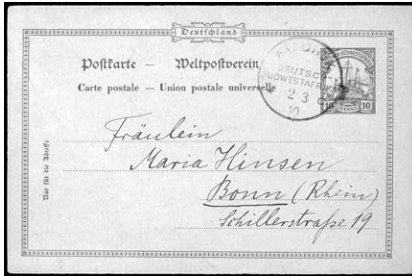 Deutschland
Postkarte — Weltpostverein
Carte postale — Union postale universelle
DEUTSCH-
SÜDWESTAFRIKA
2 3
10
10 10
Nur für die Adresse
Fräulein
Maria Hinsen
Bonn (Rhein)
Schillerstraße 19